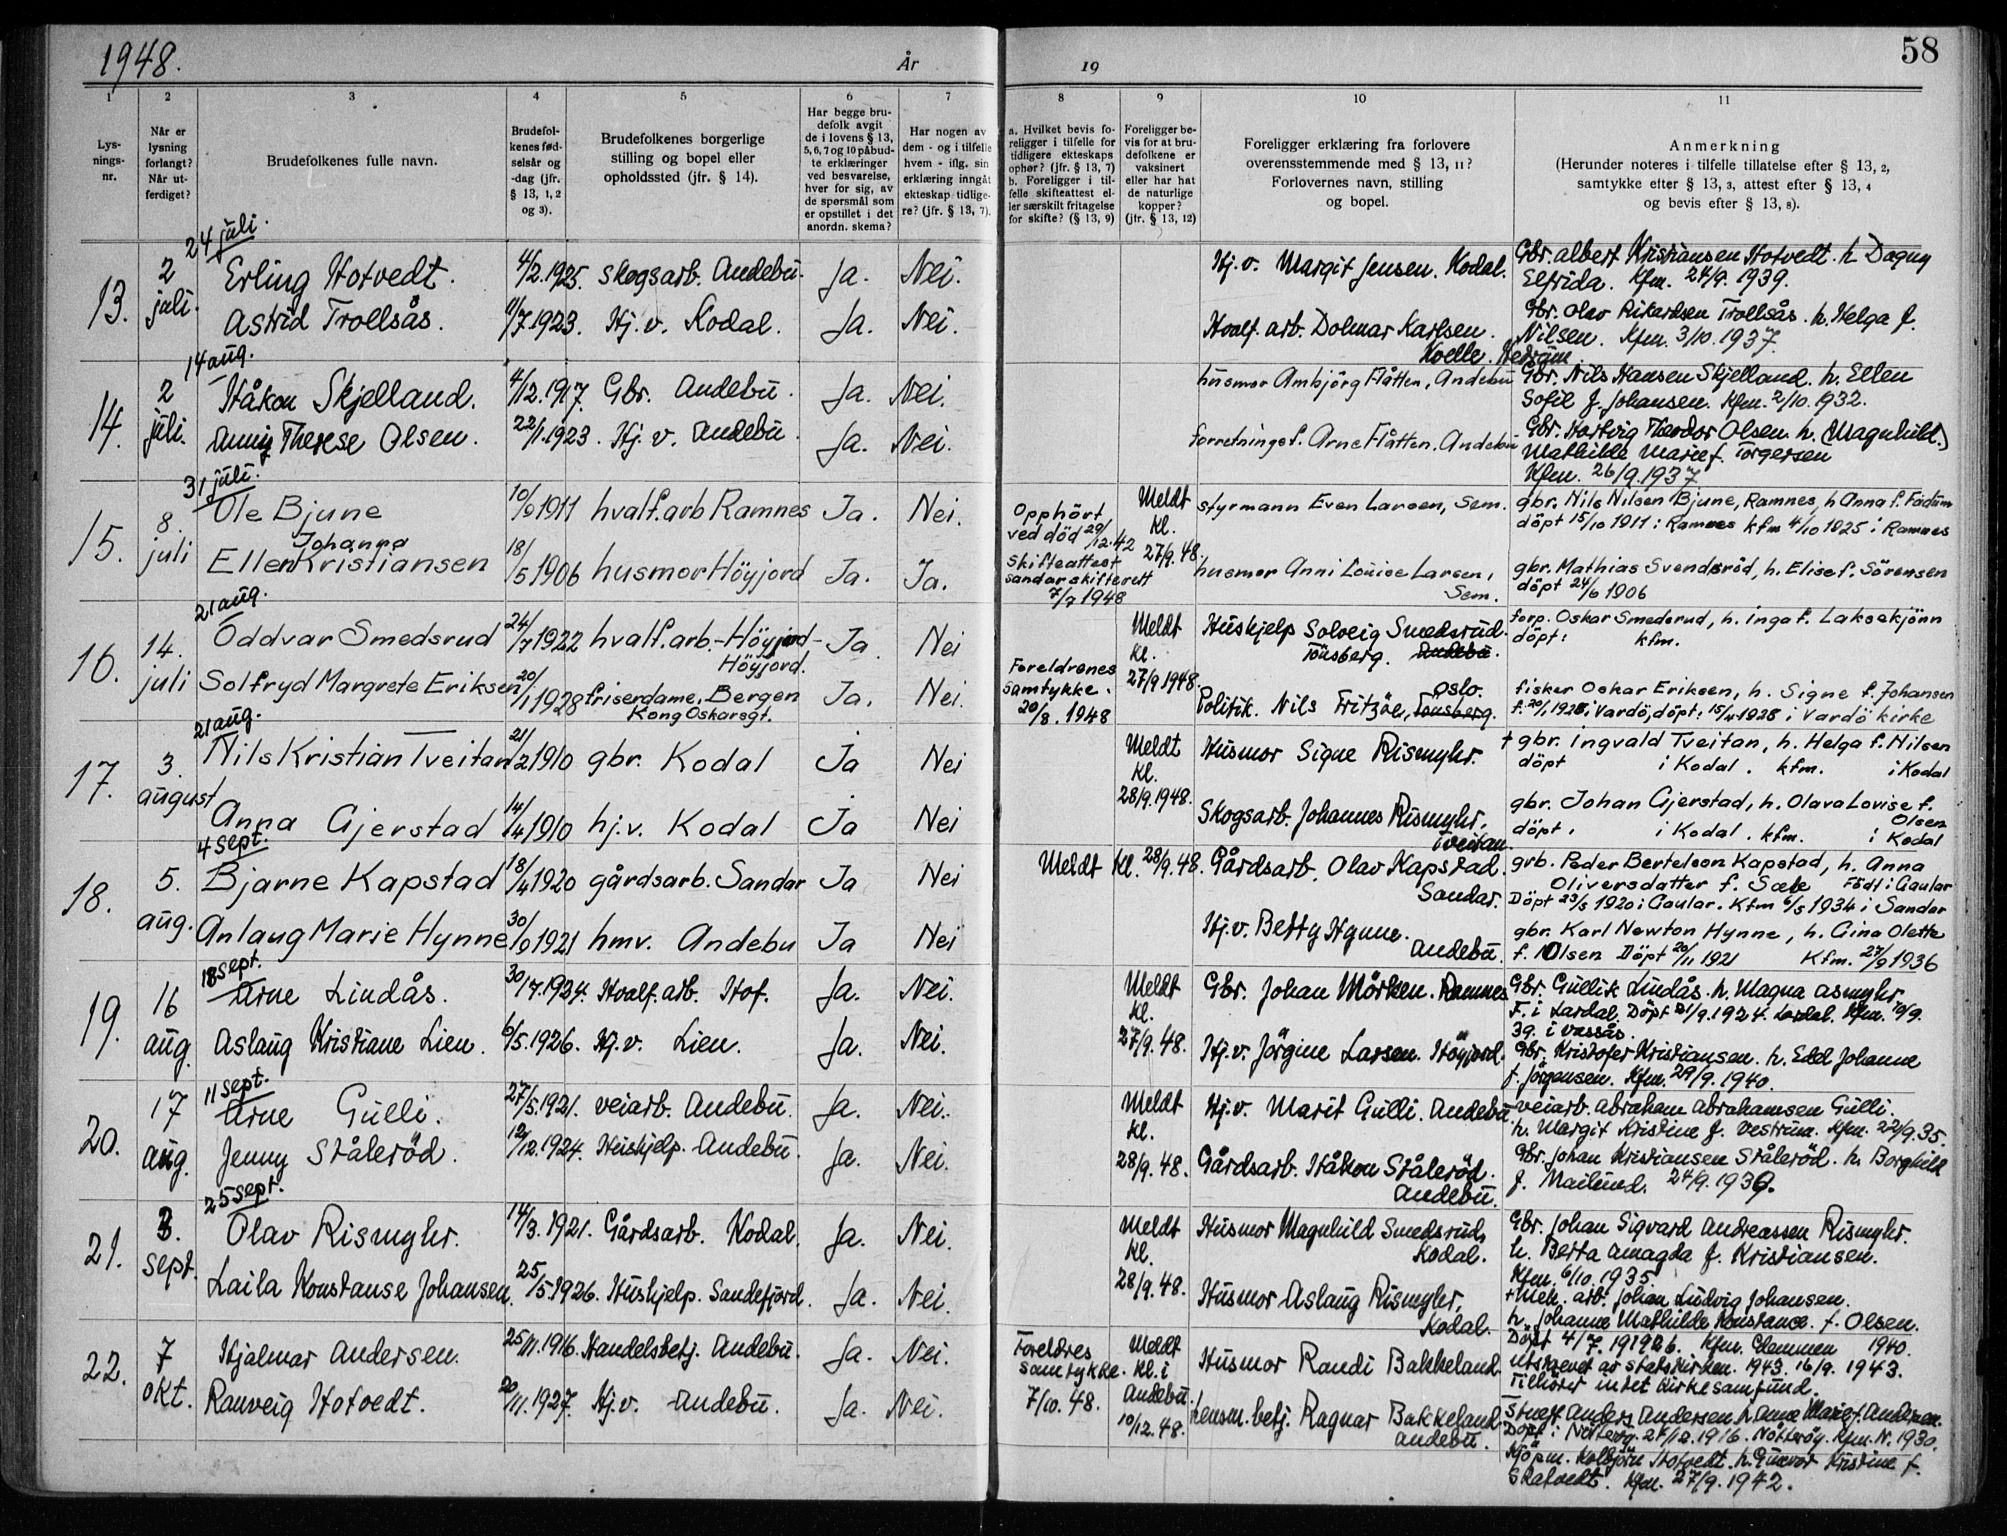 1948.
År
19
58
1
2
3
4
5
6
7
8
9
10
11
Lys-
nings-
nr.
Når er
lysning
forlangt?
Når ut-
ferdiget?
Brudefolkenes fulle navn.
Brudefol-
kenes fød-
selsår og
-dag (jfr.
§ 13, 1, 2
og 3).
Brudefolkenes borgerlige
stilling og bopel eller
opholdssted (jfr. § 14).
Har begge bru-
defolk avgit
de i lovens § 13,
5, 6, 7 og 10 påbud-
te erklæringer
ved besvarelse,
hver for sig, av
de spørsmål som
er opstillet i det
anordn. skema?
Har nogen av
dem - og i tilfelle
hvem - iflg. sin
erklæring inngått
ekteskap tidlige-
re? (jfr. § 13, 7).
a. Hvilket bevis fo-
religger i tilfelle for
tidligere ekteskaps
ophør? (jfr. § 13, 7)
b. Foreligger i til-
felle skifteattest el-
ler særskilt fritagelse
for skifte? (§ 13, 9)
Foreligger be-
vis for at bru-
defolkene er
vaksinert
eller har hat
de naturlige
kopper?
(jfr. § 13, 12)
Foreligger erklæring fra forlovere
overensstemmende med § 13, 11?
Forlovernes navn, stilling
og bopel.
Anmerkning
(Herunder noteres i tilfelle tillatelse efter § 13, 2,
samtykke efter § 13, 3, attest efter § 13, 4
og bevis efter § 13, 8).
24 juli.
13. 2 juli. Erling Hotvedt. 4/2.1925. skogsarb. Andebu. Ja. Nei. Hj.v. Margit Jensen. Kodal. Gbr. Albert Kristiansen Hotvedt. h. Dagny
Elfrida. Kfm. 24/9. 1939.
Astrid Trollsås. 11/7.1923. Hj.v. Kodal. Ja. Nei. Hvalf. arb. Dolmar Karlsen. Gbr. Olav Rikardsen Trollsås. h. Helga f.
Kvelle. Hedrum. Nilsen. Kfm. 3/10. 1937.
14 aug.
14. 2 juli. Håkon Skjelland. 4/12.1917. Gbr. Andebu. Ja. Nei. husmor Ambjörg Flåtten, Andebu Gbr. Nils Hansen Skjelland. h. Ellen
Sofie f. Johansen. Kfm. 2/10. 1932.
Anny Therese Olsen. 22/1.1923. Hj.v. Andebu. Ja. Nei. forretningsf. Arne Flåtten. Andebu Gbr. Hartvig Theodor Olsen. h. (Magnhild)
Mathilde Marie f. Torgersen
Kfm. 26/9.1937
31 juli.
15. 8. juli Ole Bjune 10/9 1911 hvalf.arb Ramnes Ja. Nei. Opphört Meldt styrmann Even Larsen, Sem. gbr. Nils Nilsen Bjune, Ramnes, h Anna f. Fadum
ved död 29/12.42 Kl. döpt 15/10 1911 i Ramnes kfm 4/10 1925 i Ramnes
Skifteattest 27/9.48.
Ellen Johanna Kristiansen 18/5 1906 husmor Höyjord Ja. Ja. sandar skifterett husmor Anni Louise Larsen, gbr. Mathias Svendsröd, h. Elise f. Sörensen
7/7 1948 Sem. döpt 24/6 1906
21 aug.
16. 14. juli Oddvar Smedsrud 24/7 1922 hvalf.arb.-Höyjord- Ja. Nei Meldt Hushjelp Solveig Smedsrud. forp. Oskar Smedsrud, h. Inga f. Laksekjönn
Höyjord. Kl. Tönsberg. Andebu. döpt: kfm.
27/9 1948.
Solfryd Margrete Eriksen 20/1 1928 friserdame, Bergen Ja. Nei. Foreldrenes Oslo. fisker Oskar Eriksen, h. Signe f. Johansen
Kong Oskarsgt. samtykke. Politik. Nils Fritzöe, Tönsberg. f. 20/1 1928 i Vardö, döpt: 15/4 1928 i Vardö kirke
20/8. 1948
21 aug.
17. 3. august Nils Kristian Tveitan 21/2 1910 gbr. Kodal Ja Nei Meldt Husmor Signe Rismyhr. + gbr. Ingvald Tveitan, h. Helga f. Nilsen
Kl. döpt i Kodal. kfm. i Kodal
28/9.1948.
Anna Gjerstad 14/4 1910 hj.v. Kodal Ja Nei Skogsarb. Johannes Rismyhr, gbr. Johan Gjerstad, h. Olava Lovise f.
Tveitan. Olsen
döpt. i Kodal. kfm. i Kodal
4 sept.
18. 5. aug. Bjarne Kapstad 18/4 1920 gårdsarb. Sandar Ja Nei Meldt Kl. 28/9.48. Gårdsarb. Olav Kapstad. grb. Peder Bertelson Kapstad, h. Anna
Sandar. Oliversdatter f. Sæle Född i Gaular
Döpt 23/5 1920 i Gaular. Kfm 6/5 1934 i Sandar
Anlaug Marie Hynne 30/9 1921 hmv. Andebu Ja Nei Hj.v. Betty Hynne. gbr. Karl Newton Hynne, h. Gina Olette
Andebu. f. Olsen Döpt 20/11 1921 Kfm. 27/9 1936
18 sept.
19. 16 aug. Arne Lindås. 30/7.1924. Hvalf. arb. Hof. Ja. Nei. Meldt Gbr. Johan Mörken. Ramnes Gbr. Gullik Lindås. h. Magna Asmyhr
Kl. F. i Lardal. Döpt 21/9.1924. Lardal. Kfm. 10/9.
27/9.48. 39. i Vassås.
Aslaug Kristiane Lien. 6/5.1926. Hj.v. Lien. Ja. Nei. Hj.v. Jörgine Larsen. Höyjord. Gbr. Kristofer Kristiansen. h. Edd Johanne
f. Jörgensen. Kfm. 29/9. 1940.
11 sept.
20. 17 aug. Arne Gulli. 27/5.1921. veiarb. Andebu. Ja. Nei. Meldt Hj.v. Marit Gulli. Andebu veiarb. Abraham Abrahamsen Gulli.
Kl. h. Margit Kristine f. Vestrum. Kfm. 22/9.35.
Jenny Ståleröd. 12/12.1924. Hushjelp. Andebu. Ja. Nei. 28/9.48. Gårdsarb. Håkon Ståleröd. Gbr. Johan Kristiansen Ståleröd. h. Borghild
Andebu. f. Mailund. 24/9.1939.
25 sept.
21. 3. sept. Olav Rismyhr. 14/3.1921. Gårdsarb. Kodal. Ja. Nei. Meldt Husmor Magnhild Smedsrud, Gbr. Johan Sigvard Andreassen Rismyhr.
Kl. Kodal. h. Berta Amagda f. Kristiansen.
28/9.48. Kfm. 6/10.1935
Laila Konstanse Johansen. 25/5.1926. Hushjelp. Sandefjord. Ja. Nei. Husmor Aslaug Rismyhr, + Mek. arb. Johan Ludvig Johansen.
Kodal. h. Johanne Mathilde Konstance. f. Olsen.
Döpt 4/7. 191926. Kfm. 1940.
utskrevet av statskirken. 1943. 16/9. 1943.
Tilhörer intet kirkesamfund.
22. 7 okt. Hjalmar Andersen. 25/11.1916. Handelsbetj. Andebu. Ja. Nei. Foreldres Meldt Husmor Randi Bakkeland
samtykke. Kl. i Anders Andersen h. Anne Marie f. Andersen.
7/10.48. Andebu. Döpt i Nötteröy. 26/12.1916. Nötteröy. Kfm. N. 1930.
Ranveig Hotvedt. 20/11.1927. Hj.v. Andebu. Ja. Nei. 10/12.48. lensm. betj. Ragnar Bakkeland Kjöpm. Kolbjörn Hotvedt. h. Gunvor Kristine f.
Andebu. Skatvedt. Kfm. 27/9.1942.